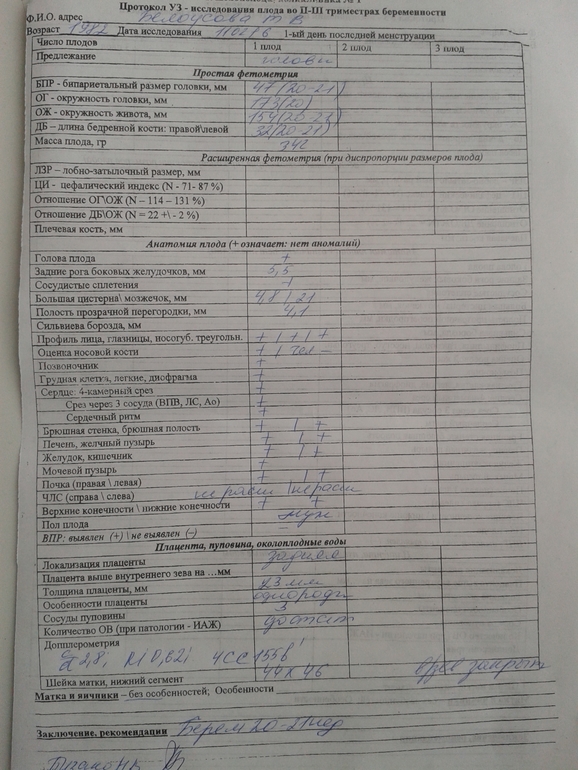 Протокол УЗ - исследования плода во II-III триместрах беременности
Ф.И.О. адрес Белоусова Т В
Возраст 1982 Дата исследования 1-ый день последней менструации
Число плодов 1 плод 2 плод 3 плод
Предлежание головн
Простая фетометрия
БПР - бипариетальный размер головки, мм 47 (20-21)
ОГ - окружность головки, мм 173 (20)
ОЖ - окружность живота, мм 154 (20-21)
ДБ – длина бедренной кости: правой\левой 32 (20-21)
Масса плода, гр 342
Расширенная фетометрия (при диспропорции размеров плода)
ЛЗР – лобно-затылочный размер, мм
ЦИ - цефалический индекс (N - 71- 87 %)
Отношение ОГ\ОЖ (N – 114 – 131 %)
Отношение ДБ\ОЖ (N = 22 +\ - 2 %)
Плечевая кость, мм
Анатомия плода (+ означает: нет аномалий)
Голова плода +
Задние рога боковых желудочков, мм 5,5
Сосудистые сплетения
Большая цистерна\ мозжечок, мм 4,8 | 21
Полость прозрачной перегородки, мм 4,1
Сильвиева борозда, мм
Профиль лица, глазницы, носогуб. треугольн. + | + | +
Оценка носовой кости +
Позвоночник +
Грудная клетка, легкие, диафрагма +
Сердце: 4-камерный срез +
Срез через 3 сосуда (ВПВ, ЛС, Ао) +
Сердечный ритм +
Брюшная стенка, брюшная полость + | +
Печень, желчный пузырь + | +
Желудок, кишечник + | +
Мочевой пузырь +
Почка (правая \ левая) + | +
ЧЛС (справа \ слева) не расш | не расш
Верхние конечности \ нижние конечности + +
Пол плода муж
ВПР: выявлен (+) \ не выявлен (–) –
Плацента, пуповина, околоплодные воды
Локализация плаценты задняя
Плацента выше внутреннего зева на …мм
Толщина плаценты, мм 23 мм
Особенности плаценты однородн
Сосуды пуповины 3
Количество ОВ (при патологии - ИАЖ) достат
Допплерометрия
2,8; RI 0,62; ЧСС 155
Шейка матки, нижний сегмент 44 х 46 зев закрыт
Матка и яичники – без особенностей; Особенности
Заключение, рекомендации Берем 20-21 нед